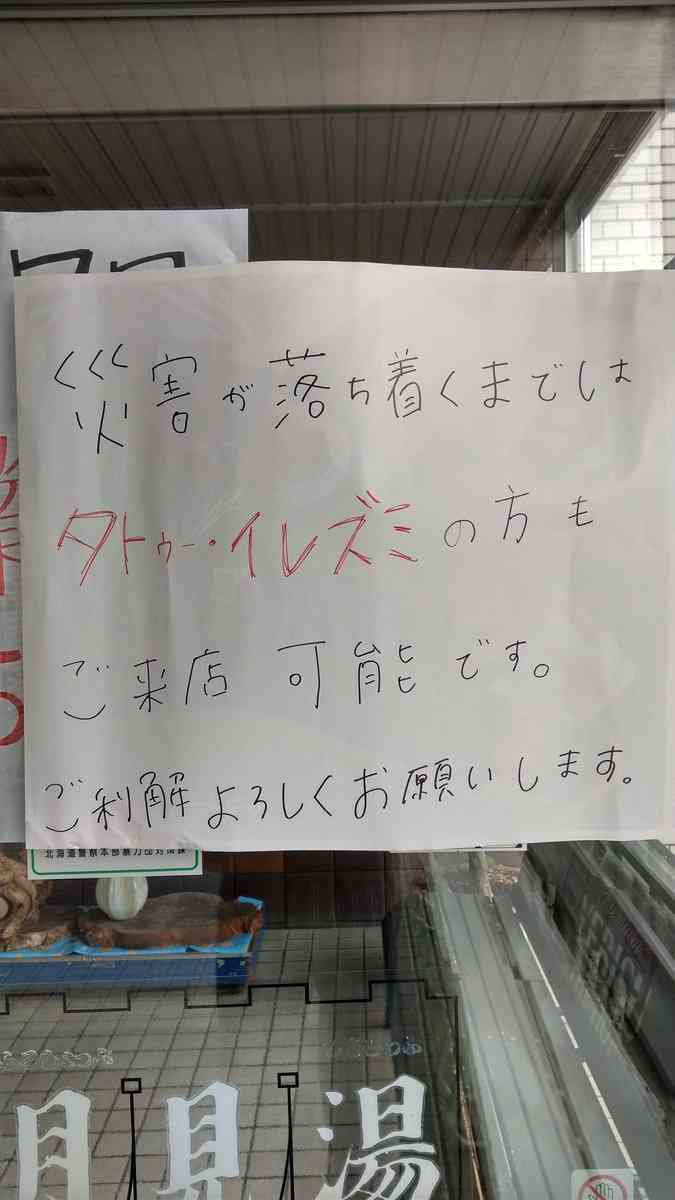 災害が落ち着くまでは
タトゥー・イレズミの方も
ご来店 可能です。
ご利解よろしくお願いします。
北海道警察本部暴力団対策課
月見湯